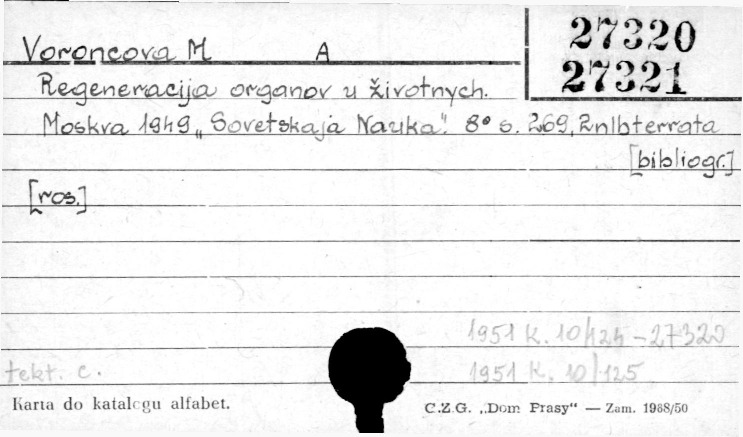 Voroncova M A
27320
27321
Regeneracija organov u životnych.
Moskva 1949 „Sovetskaja Nauka". 8° s. 269, 2nlb
[bibliogr.]
[ros.]
1951 K. 10/124 - 27320
tekt. c.
1951 K. 10/125
Karta do katalogu alfabet.
C.Z.G. „Dom Prasy“ — Zam. 1968/50